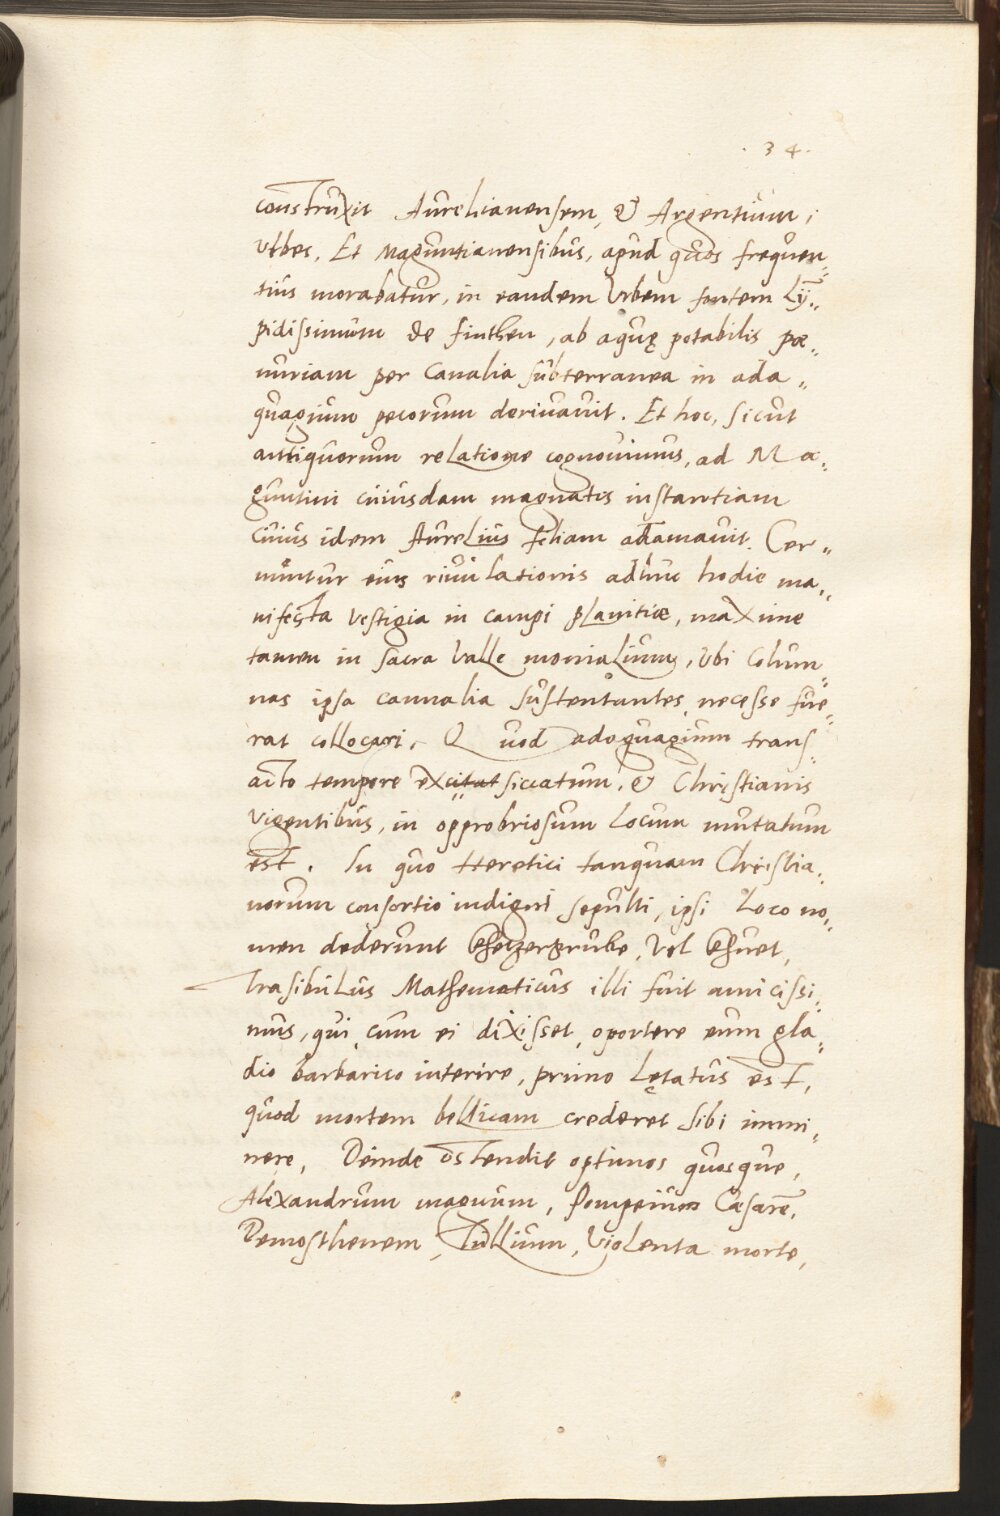 . 34.
construxit Aurelianensem, & Argentinam,
Urbes. Et Maguntianensibus, apud quos frequen„
tius morabatur, in eandem Urbem fontem Ly„
pidissimum de Finthen, ab aquę potabilis pæ„
nuriam per Canalia subterranea in ada„
quagium pecorum derivavit. Et hoc, sicut
antiquorum relatione cognovimus, ad Ma„
guntini cuiusdam magnatis instantiam
Cuius idem Aurelius filiam adamavit. Cer„
nuntur eius rivulationis adhuc hodie ma„
nifesta vestigia in campi planitiæ, maxime
tamen in sacra Valle monialium, Ubi Colum„
nas ipsa cannalia sustentantes, necesse fue„
rat collocari. Quod adaquagium trans„
acto tempore excitat siccatum, & Christianis
Vigentibus, in opprobriosum Locum mutatum
est. In quo Heretici tanquam Christia„
norum consortio indigni sepulti, ipsi Loco no„
men dederunt Khetzergrube, Vel Khuet,
Trasibulus Mathematicus illi fuit amicissi„
mus, qui, cum ei dixisset, oportere eum gla„
dio barbarico interire, primo Lętatus est,
quod mortem bellicam crederet sibi immi„
nere, Deinde ostendit optimos quosque,
Alexandrum magnum, Pompeium Cæsarē,
Demosthenem, Tullium, Violenta morte,